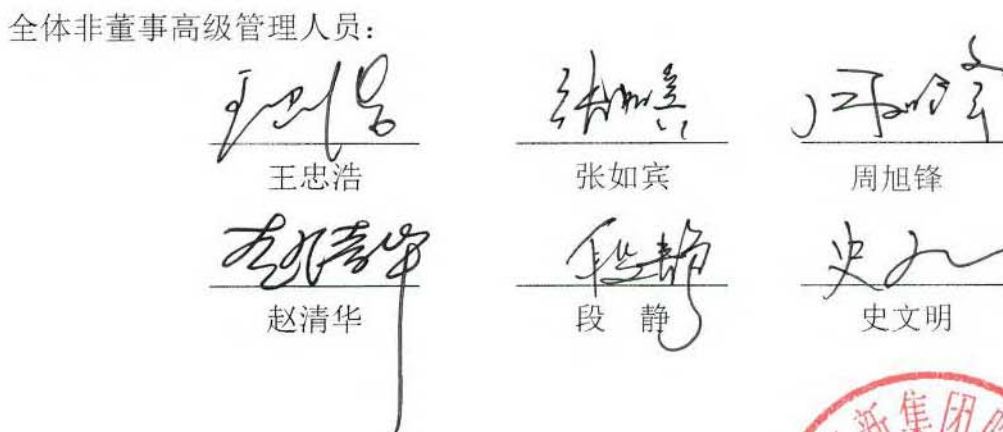 全体非董事高级管理人员：
王忠浩 张如宾 周旭锋
赵清华 段 静 史文明
新集团